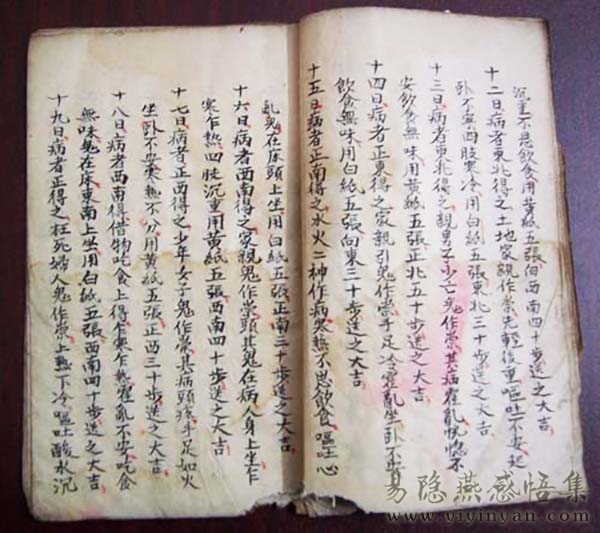 沉重不思飲食用黃紙五張向西南四十步送之大吉
十二日病者東北得之土地家親作祟先輕後重嘔吐不安起
卧不安四肢寒冷用白紙五張東北三十步送之大吉
十三日病者東北得之親男子少亡鬼作祟其病霍亂恍惚不
安飲食無味用黃紙五張正北五十步送之大吉
十四日病者正東得之家親引鬼作祟手足冷霍乱坐卧不安
飲食無味用白紙五張向東三十步送之大吉
十五日病者正南得之水火二神作病寒熱不思飲食嘔吐心
乱鬼在床頭上坐用白紙五張正南三十步送之大吉
十六日病者西南得之家親鬼作祟頭其鬼在病人身上坐乍
寒乍熱四肢沉重用黃紙五張西南四十步送之大吉
十七日病者正西得之少年女子鬼作祟其病頭疼手足如火
坐卧不安寒熱不分用黃紙五張正西三十步送之大吉
十八日病者西南得借物吃食上得乍寒乍熱霍亂不安吃食
無味鬼在床東南上坐用白紙五張西南四十步送之大吉
十九日病者正得之枉死婦人鬼作祟上熱下冷嘔吐酸水沉
易隐燕感悟集
www.yiyinyan.com